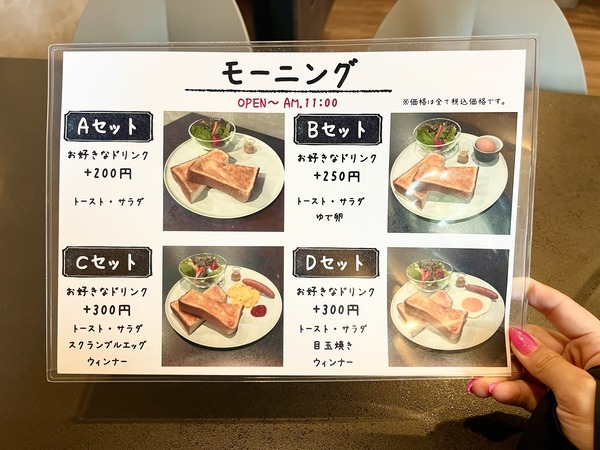 モーニング
OPEN～ AM.11:00
※価格は全て税込価格です。
Aセット
お好きなドリンク
+200円
トースト・サラダ
Bセット
お好きなドリンク
+250円
トースト・サラダ
ゆで卵
Cセット
お好きなドリンク
+300円
トースト・サラダ
スクランブルエッグ
ウィンナー
Dセット
お好きなドリンク
+300円
トースト・サラダ
目玉焼き
ウィンナー